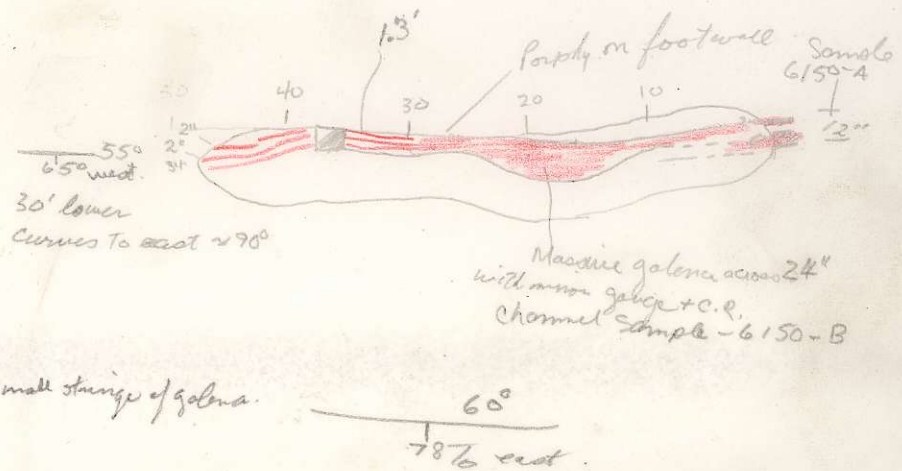 1.3'
Porphy on footwall
Sample
6150-A
50 40 30 20 10
2"
2"
3"
12"
55°
65° west.
30' lower
Curves to east ~90°
Massive galena across 24"
with minor gouge + C.R.
Channel Sample - 6150-B
mall stringe of galena.
60°
78 To east.